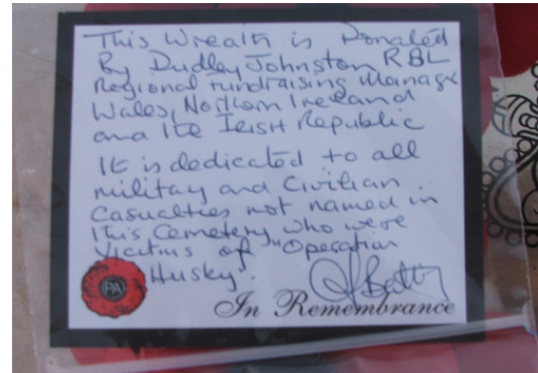 This Wreath is Donated
By Dudley Johnston RBL
Regional Fundraising Manager
Wales, Northern Ireland
and the Irish Republic
It is dedicated to all
military and Civilian
Casualties not named in
this Cemetery who were
Victims of "Operation
Husky".
PA
In Remembrance